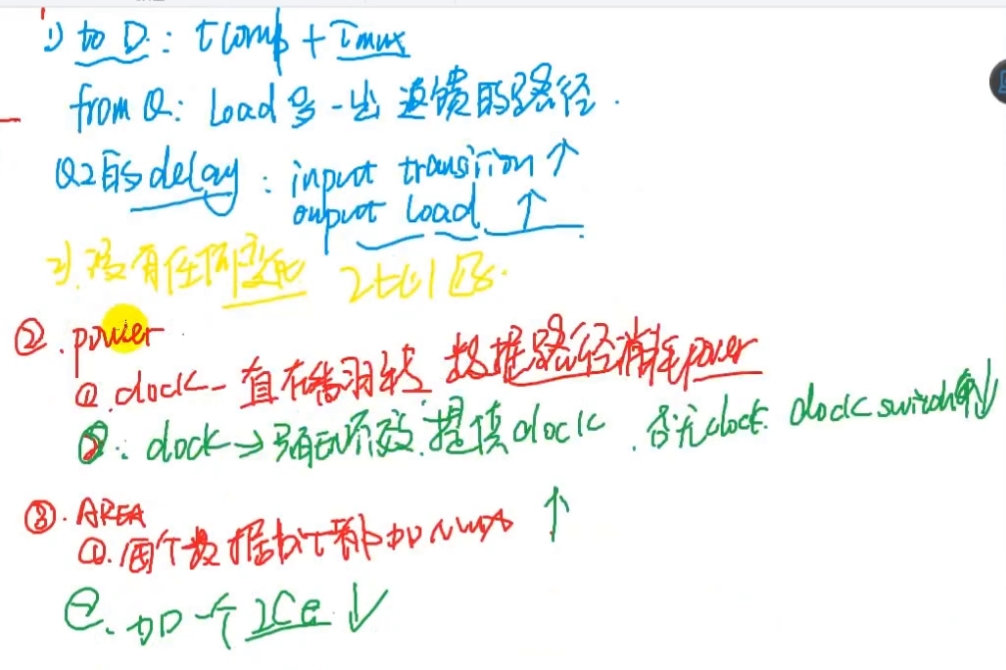 1) to D: Tcomb + Tmux
from Q: Load 多一出 返馈的路径.
Q2的delay: input transition ↑
ouput load ↑
2) 没有任何变化 2比1 好.
②. power
①. clock一直在翻转 数据路径消耗power
②. clock → 有效 提供clock. 否无clock. clock switch ↓
③. AREA
①. 每个数据 都加 mux ↑
②. 加一个 ICG ↓